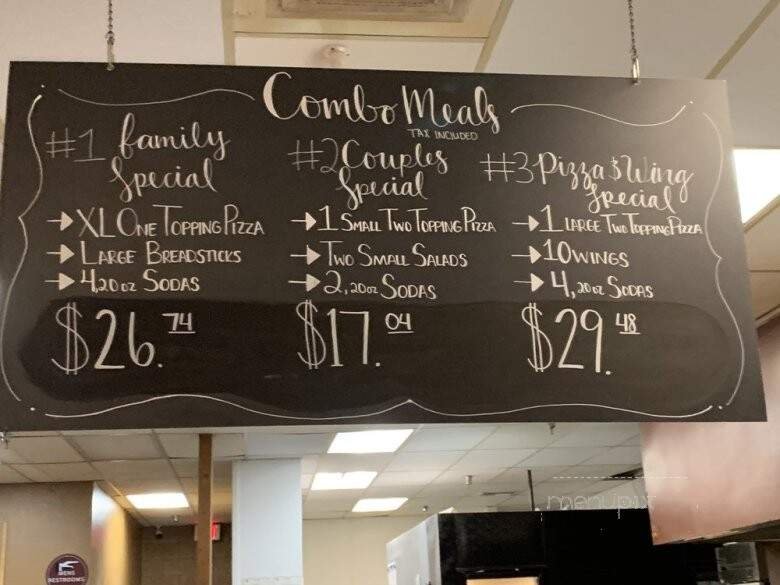 Combo Meals
TAX INCLUDED
#1 family
Special
→XL ONE TOPPING PIZZA
→LARGE BREADSTICKS
→4,20oz SODAS
$26.74
#2 Couples
Special
→1 SMALL TWO TOPPING PIZZA
→TWO SMALL SALADS
→2,20oz SODAS
$17.04
#3 Pizza & Wing
Special
→1 LARGE TWO TOPPING PIZZA
→10 WINGS
→4,20oz SODAS
$29.48
menupix
MENS
RESTROOMS